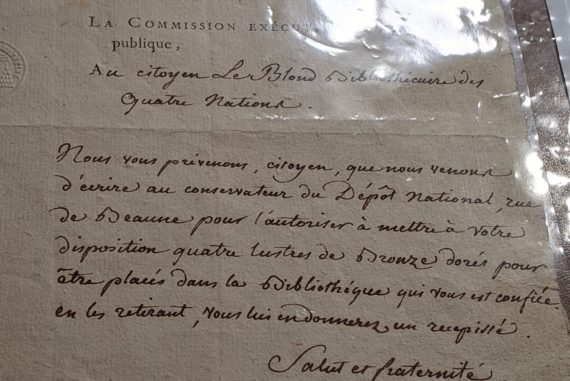 La Commission exécut
publique,
Au citoyen Le Blond Bibliothécaire des
Quatre Nations.
Nous vous prévenons, citoyen, que nous venons
d'écrire au conservateur du Dépôt National, rue
de Beaune pour l'autoriser à mettre à votre
disposition quatre lustres de Bronze dorés pour
être placés dans la Bibliothéque qui vous est confiée.
en les retirant, vous lui en donnerez un recepissé.
Salut et fraternité